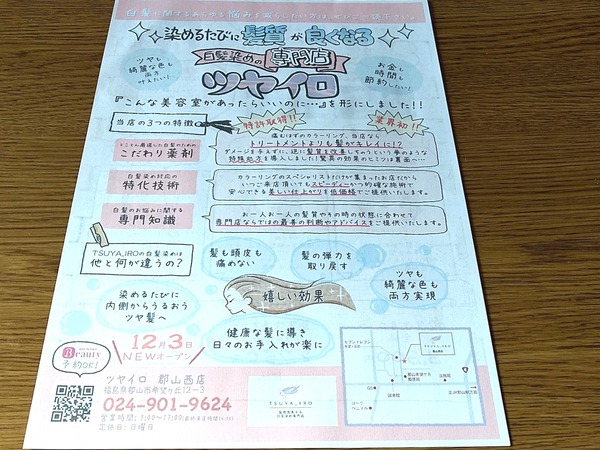 白髪に関するあらゆる悩みを減らしたい方は、ぜひご一読下さい。
染めるたびに髪質が良くなる
白髪染めの専門店
ツヤイロ
ツヤも
綺麗な色も
両方
叶えたい!
お金も
時間も
節約したい!
『こんな美容室があったらいいのに…』を形にしました!!
当店の3つの特徴
特許取得!!
業界初!!
とことん厳選した白髪のための
こだわり薬剤
痛むはずのカラーリング、当店なら
トリートメントよりも髪がキレイに!?
ダメージを与えずに、逆に髪質を改善しちゃうという夢のような
特殊処方を導入しました!驚異の効果のヒミツは裏面へ…
白髪染め対応の
特化技術
カラーリングのスペシャリストだけが集まったお店だから
いつご来店頂いてもスピーディーかつ的確な施術で
安心できる美しい仕上がりを低価格でご提供いたします。
白髪のお悩みに関する
専門知識
お一人お一人の髪質やその時の状態に合わせて
専門店ならではの最善の判断やアドバイスをご提供いたします。
TSUYA_IROの白髪染めは
他と何が違うの?
髪も頭皮も
痛めない
髪の弾力を
取り戻す
ツヤも
綺麗な色も
両方実現
染めるたびに
内側からうるおう
ツヤ髪へ
嬉しい効果
健康な髪に導き
日々のお手入れが楽に
Beauty
予約OK!
12月3日
NEWオープン
ツヤイロ 郡山西店
福島県郡山市希望ヶ丘12-3
024-901-9624
定休日:日曜日
TSUYA_IRO
セブンイレブン
TSUYA_IRO
GS
ヨーク
ベニマル